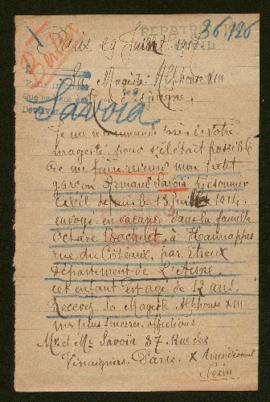 36,126
Paris 29 Juillet 1917
Sa Majesté Alphonse XIII
d'Espagne
Savoia
Je me recommande à Votre
majesté pour s'il était possible
de me faire revenir mon petit
garçon Armand Savoia prisonnier
Civil depuis le 13 Juillet 1914
envoyé en vacance dans la famille
Octave Bocquet, à Hannappes
rue du Coteaux, par Etreux
Département de L'Aisne
cet enfant est age de 12 ans.
Recevez Sa Majesté Alphonse XIII
mes plus sinceres
Mr et Me Savoia 37. Rue des
Vinaigriers. Paris. X Arrondissement
Seine